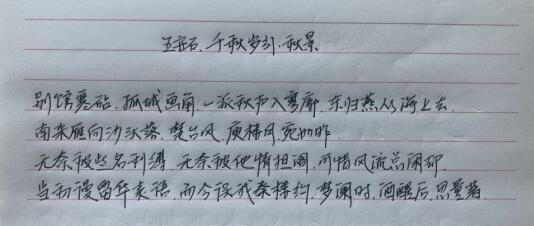 王安石.千秋岁引.秋景
别馆寒砧.孤城画角.一派秋声入寥廓.东归燕从海上去.
南来雁向沙头落.楚台风.庾楼月.宛如昨.
无奈被些名利缚.无奈被他情担阁.可惜风流总闲却.
当初漫留华表语.而今误我秦楼约.梦阑时.酒醒后.思量着.